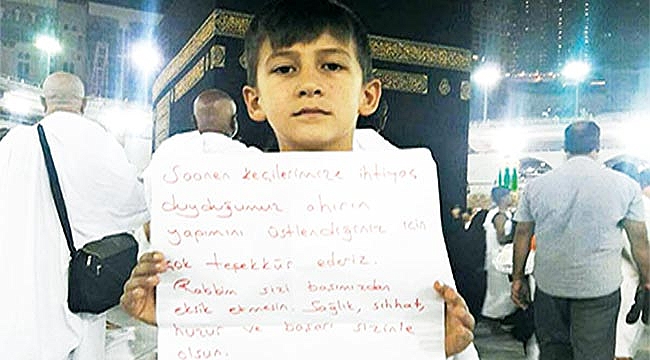 Saanen keçilerimize ihtiyaç
duyduğumuz ahırın
yapımını üstlendiğiniz için
çok teşekkür ederiz.
Rabbim sizi başımızdan
eksik etmesin. Sağlık, sıhhat,
huzur ve başarı sizinle
olsun.